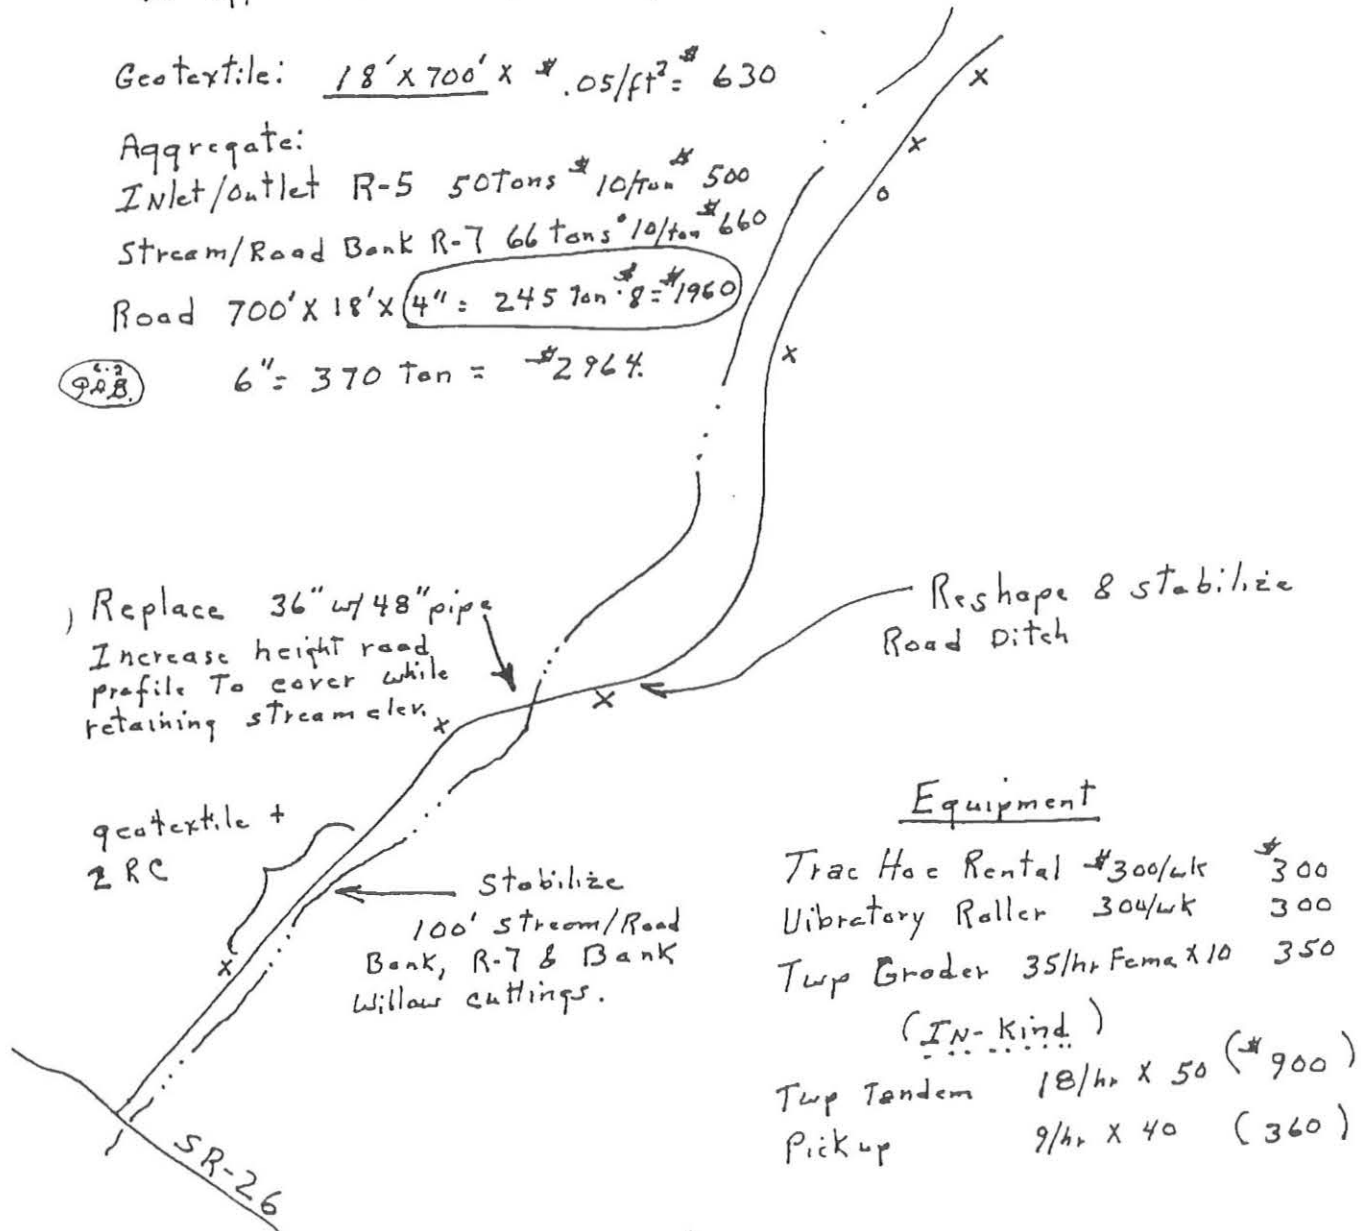 Geotextile: 18' X 700' X $.05/ft² = $630
Aggregate:
INlet/outlet R-5 50Tons $10/Ton $500
Stream/Road Bank R-7 66 tons 10/ton $660
Road 700' X 18' X 4" = 245 Ton · $8 = $1960
6" = 370 Ton = $2964.
Replace 36" w/ 48" pipe
Increase height road
profile To cover while
retaining stream elev.
Reshape & stabilize
Road Ditch
geotextile +
2 RC
Stabilize
100' stream/Road
Bank, R-7 & Bank
Willow cuttings.
SR-26
Equipment
Trac Hoe Rental $300/wk $300
Vibratory Roller 300/wk 300
Twp Grader 35/hr Fema X 10 350
(IN-Kind)
Twp Tandem 18/hr X 50 ($900)
Pickup 9/hr X 40 (360)